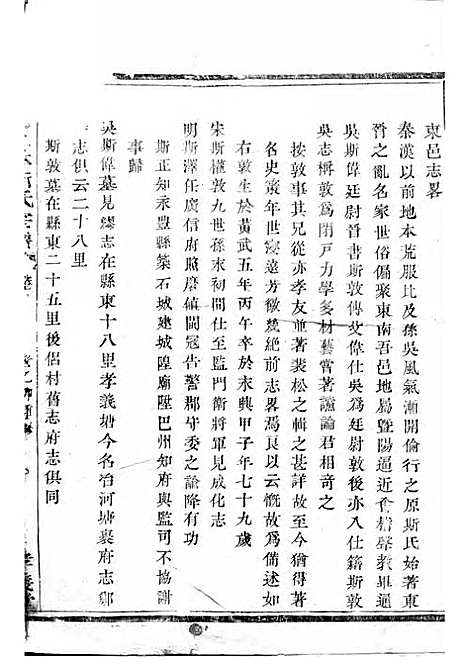 東邑志畧
秦漢以前地本荒服比及孫吳風氣漸開倫行之原斯氏始著東
晉之亂名家世俗偏聚東南吾邑地局暨陽逼近會稽聲教畢通
吳斯偉廷尉晉書斯敦傳攷吳為廷尉敦後亦入仕籍斯敦
吳志稱敦爲閉戶力學多材藝嘗著議論君相奇之
按敦事其從亦孝友並著裴松之輯之甚詳故至今猶得著
名史策年世寖遠芳徽幾絶前志畧焉良以云慨故爲備述如
右敦生於黃武五年丙午卒於永興甲子年七十九歲
宋斯權敦九世孫永初間仕至監門衛將軍見成化志
明斯澤任廣信府經歷値閩冦告警郡守委之論降有功
斯正知永豐縣築石城建城隍廟陞巴州知府與監司不協謝
事歸
吳斯偉墓見繆志在縣東十八里孝義塘今名治河塘裴府志鄒
志俱云二十八里
斯敦墓在縣東二十五里後侣村舊志府志俱同